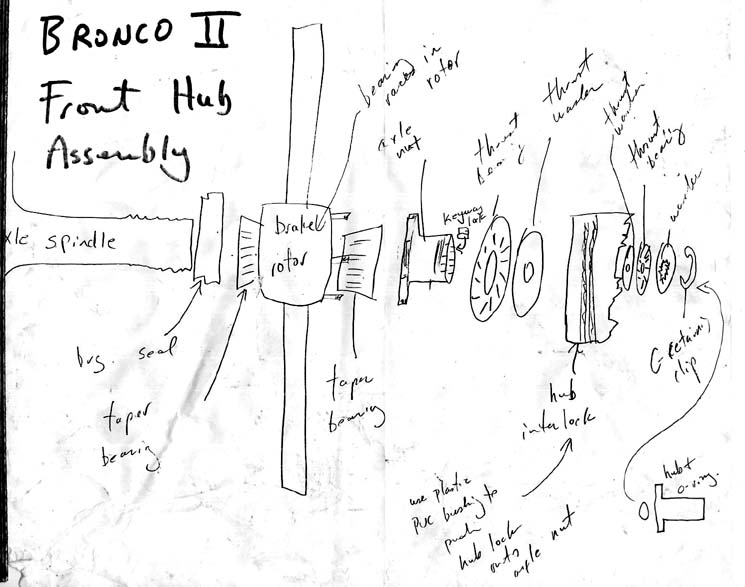 BRONCO II
Front Hub
Assembly
bearing
races in
rotor
axle
nut
thrust
bearing
thrust
washer
thrust
washer
thrust
bearing
washer
keyway
lock
xle spindle
brake
rotor
brg. seal
taper
bearing
taper
bearing
hub
interlock
C-retaining
clip
use plastic
PVC bushing to
push
hub lock
onto
axle nut
hub +
o-ring.